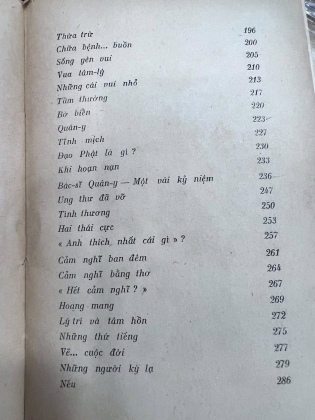 Thừa trừ 196
Chữa bệnh... buồn 200
Sống yên vui 205
Vua tâm-lý 210
Những cái vui nhỏ 213
Tầm thường 217
Bờ biển 220
Quân-y 223
Tĩnh mịch 227
Đạo Phật là gì ? 230
Khi hoạn nạn 233
Bác-sĩ Quân-y — Một vài kỷ niệm 236
Ung thư đã vỡ 247
Tình thương 250
Hai thái cực 253
« Anh thích nhất cái gì » ? 257
Cảm nghĩ ban đêm 261
Cảm nghĩ bằng thơ 264
« Hết cảm nghĩ ? » 267
Hoang mang 269
Lý trí và tâm hồn 272
Những thứ tiếng 275
Về... cuộc đời 277
Những người kỳ lạ 279
Nếu 286